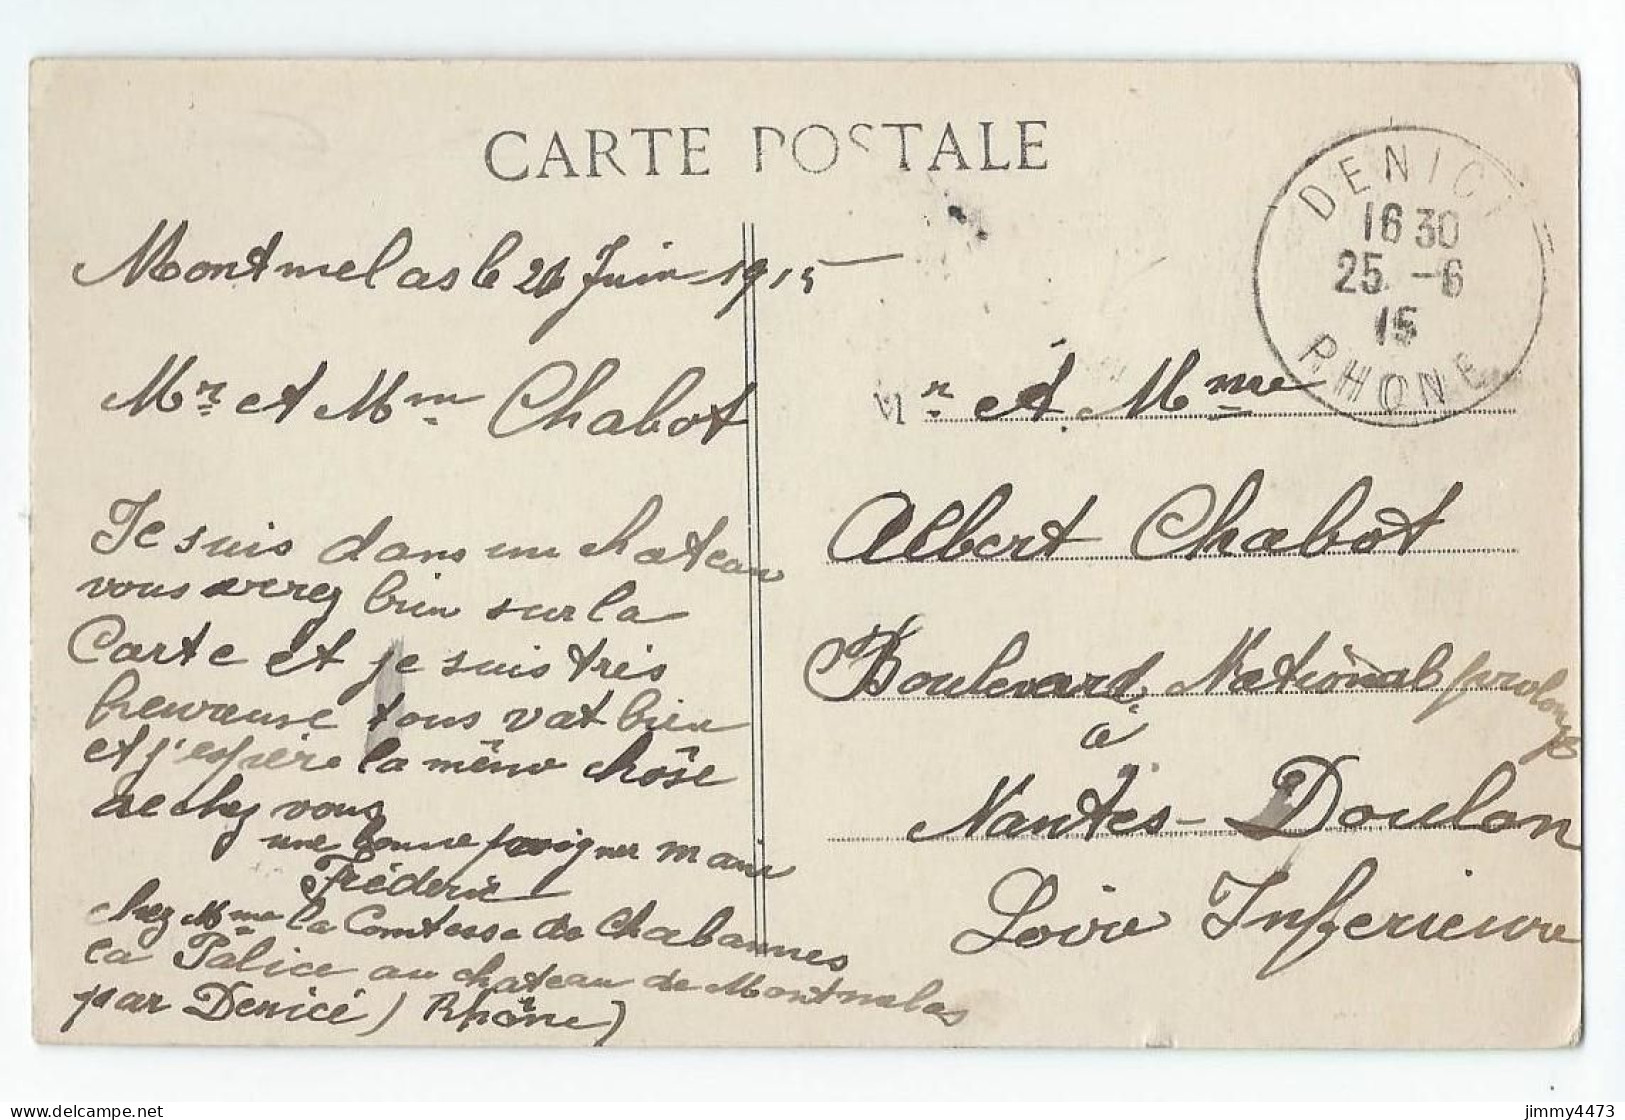 CARTE POSTALE
DENICÉ
16 30
25 -6
15
RHONE
Montmelas le 24 Juin 1915
Mr et Mme Chabot
Je suis dans un chateau
vous verrez bien sur la
Carte et je suis très
heureuse tous vat bien
et j'espère la même chôse
de chez vous
une bonne poigner main
Fréderic
chez Mme la Comtesse de Chabannes
La Palice au chateau de Montmelas
par Denicé (Rhône)
Mr et Mme
Albert Chabot
Boulevard National prolongé
a
Nantes-Doulon
Loire Inferieure
jimmy4473